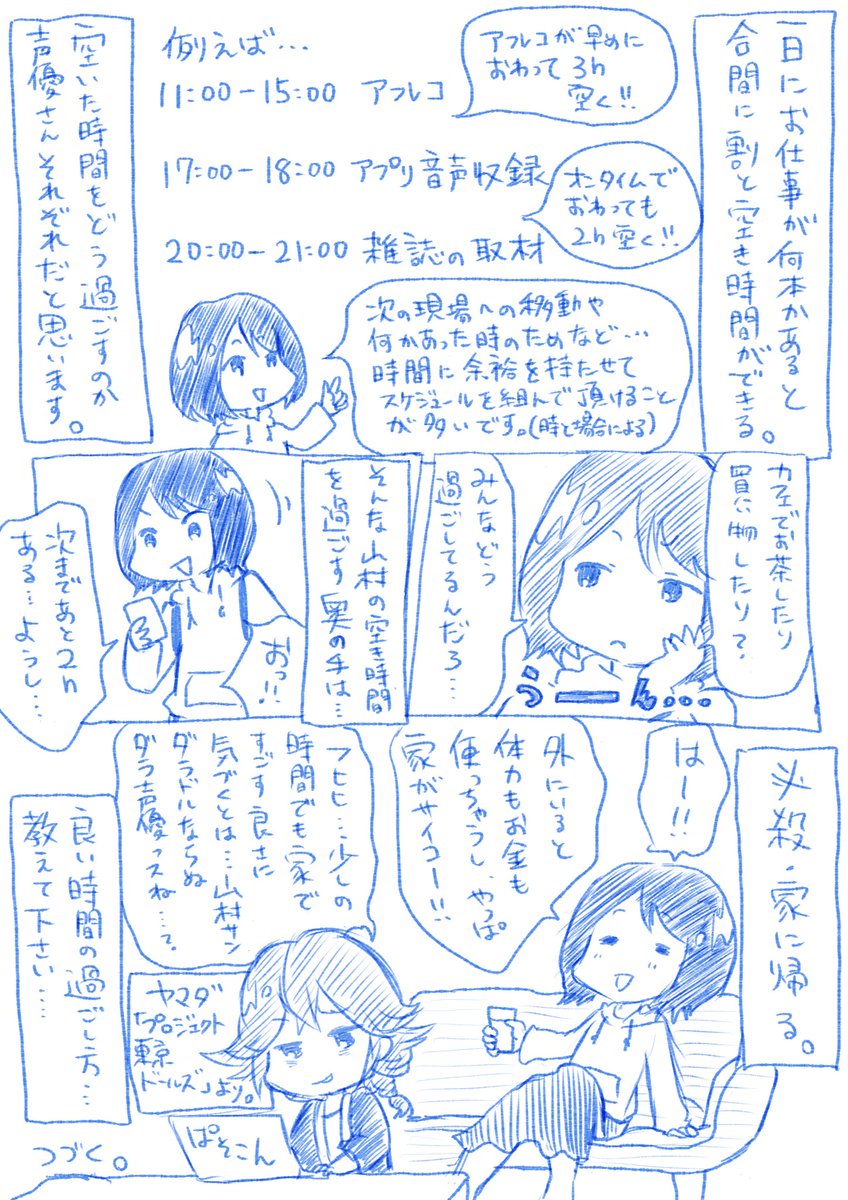 一日にお仕事が何本かあると
合間に割と空き時間ができる。
アフレコが早めに
おわって3h
空く!!
例えば…
11:00-15:00 アフレコ
17:00-18:00 アプリ音声収録
オンタイムで
おわっても
2h空く!!
20:00-21:00 雑誌の取材
次の現場への移動や
何かあった時のためなど…
時間に余裕を持たせて
スケジュールを組んで頂けること
が多いです。(時と場合による)
空いた時間をどう過ごすのか
声優さんそれぞれだと思います。
カフェでお茶したり
買い物したり?
みんなどう
過ごしてるんだろ…
うーーん…
そんな山村の空き時間
を過ごす奥の手は…
おっ!!
次まであと2h
ある…ようし…
必殺・家に帰る。
はー!!
外にいると
体力もお金も
使っちゃうし、やっぱ
家がサイコー!!
フヒヒ…少しの
時間でも家で
すごす良さに
気づくとは…山村サン
ダラドルならぬ
ダラ声優っスね…?
ヤマダ
「プロジェクト
東京
ドールズ」より。
ぱそこん
良い時間の過ごし方…
教えて下さい……
つづく。